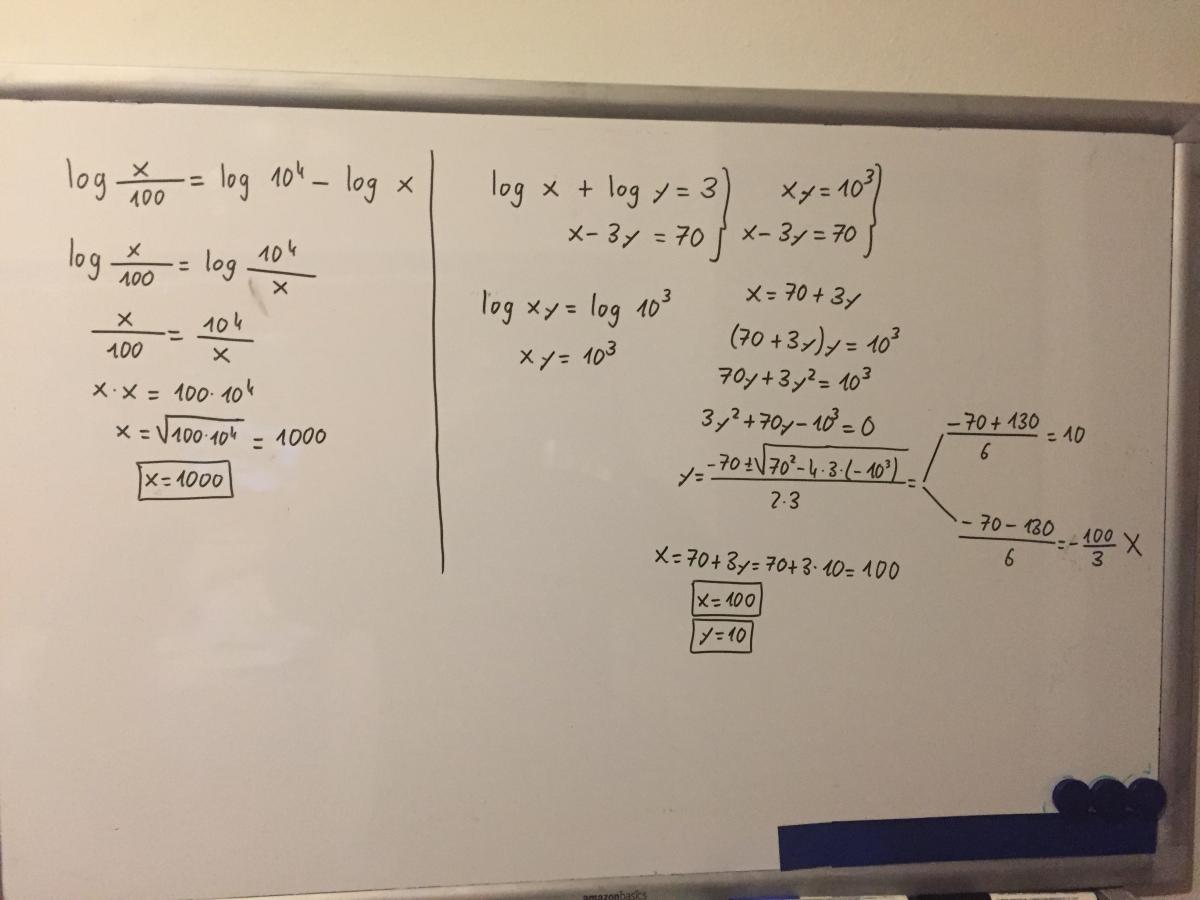 log x/100 = log 10⁴ - log x
log x/100 = log 10⁴/x
x/100 = 10⁴/x
x·x = 100·10⁴
x = √(100·10⁴) = 1000
x=1000
log x + log y = 3 }
x - 3y = 70
log xy = log 10³
xy = 10³
xy = 10³ }
x - 3y = 70
x = 70 + 3y
(70 + 3y)y = 10³
70y + 3y² = 10³
3y² + 70y - 10³ = 0
y = (-70 ± √(70² - 4·3·(-10³)))/(2·3) =
(-70 + 130)/6 = 10
(-70 - 130)/6 = -100/3 X
x = 70 + 3y = 70 + 3·10 = 100
x=100
y=10
amazonbasics